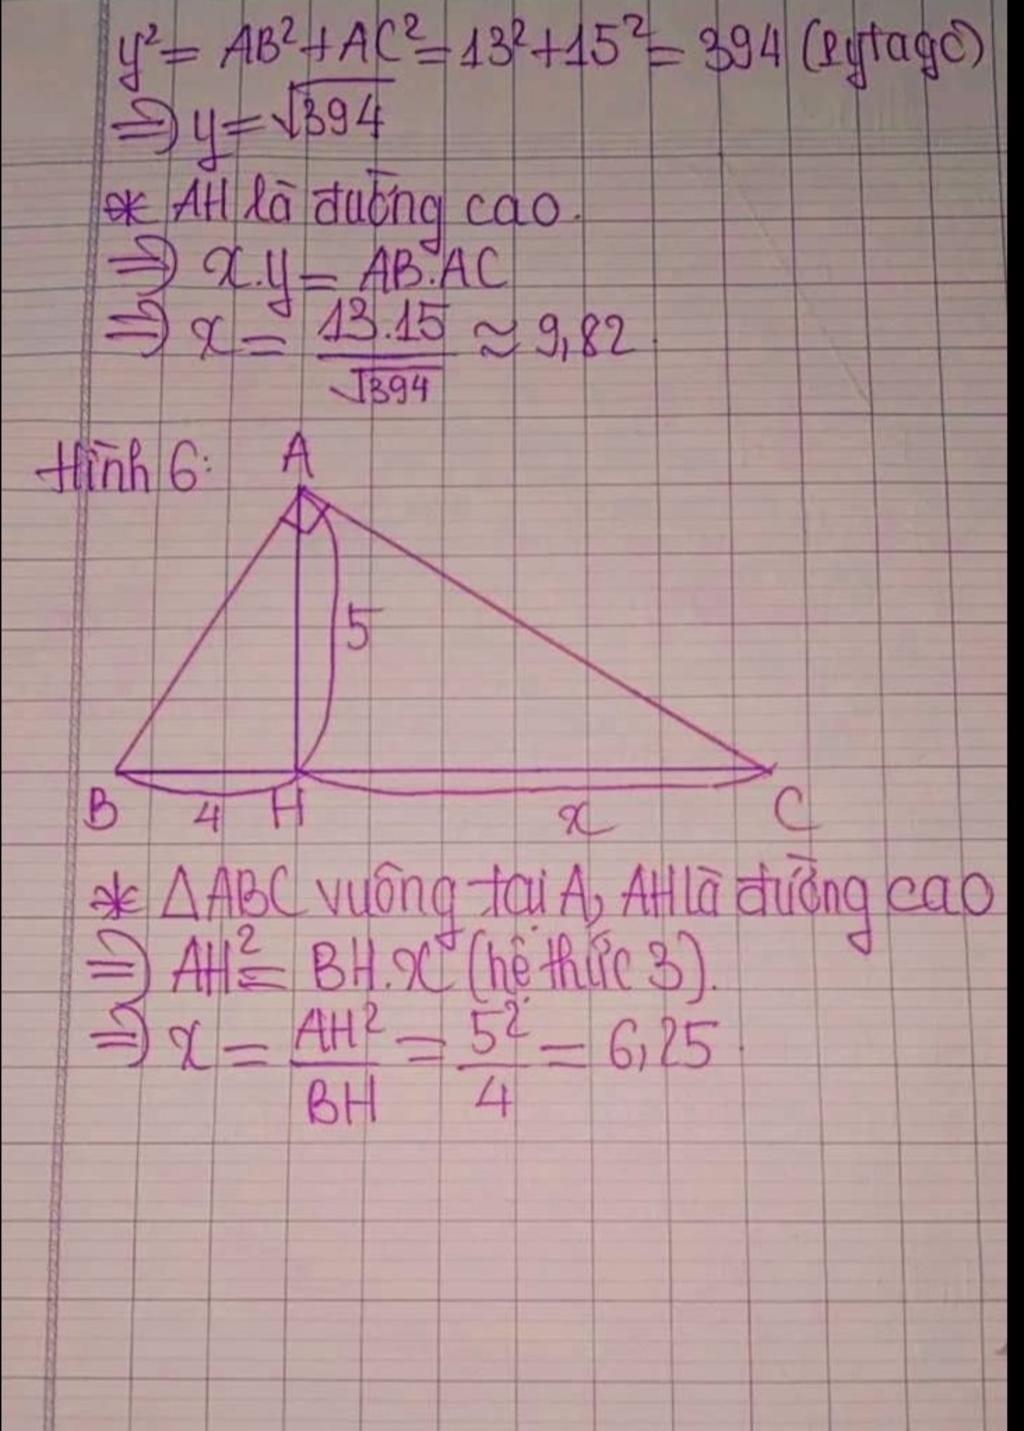 y² = AB² + AC² = 13² + 15² = 394 (Pytago)
⇒ y = √394
* AH là đường cao.
⇒ x.y = AB.AC
⇒ x = 13.15/√394 ≈ 9,82
Hình 6:
A
5
B 4 H x C
* ΔABC vuông tại A, AH là đường cao
⇒ AH² = BH.x (hệ thức 3).
⇒ x = AH²/BH = 5²/4 = 6,25.